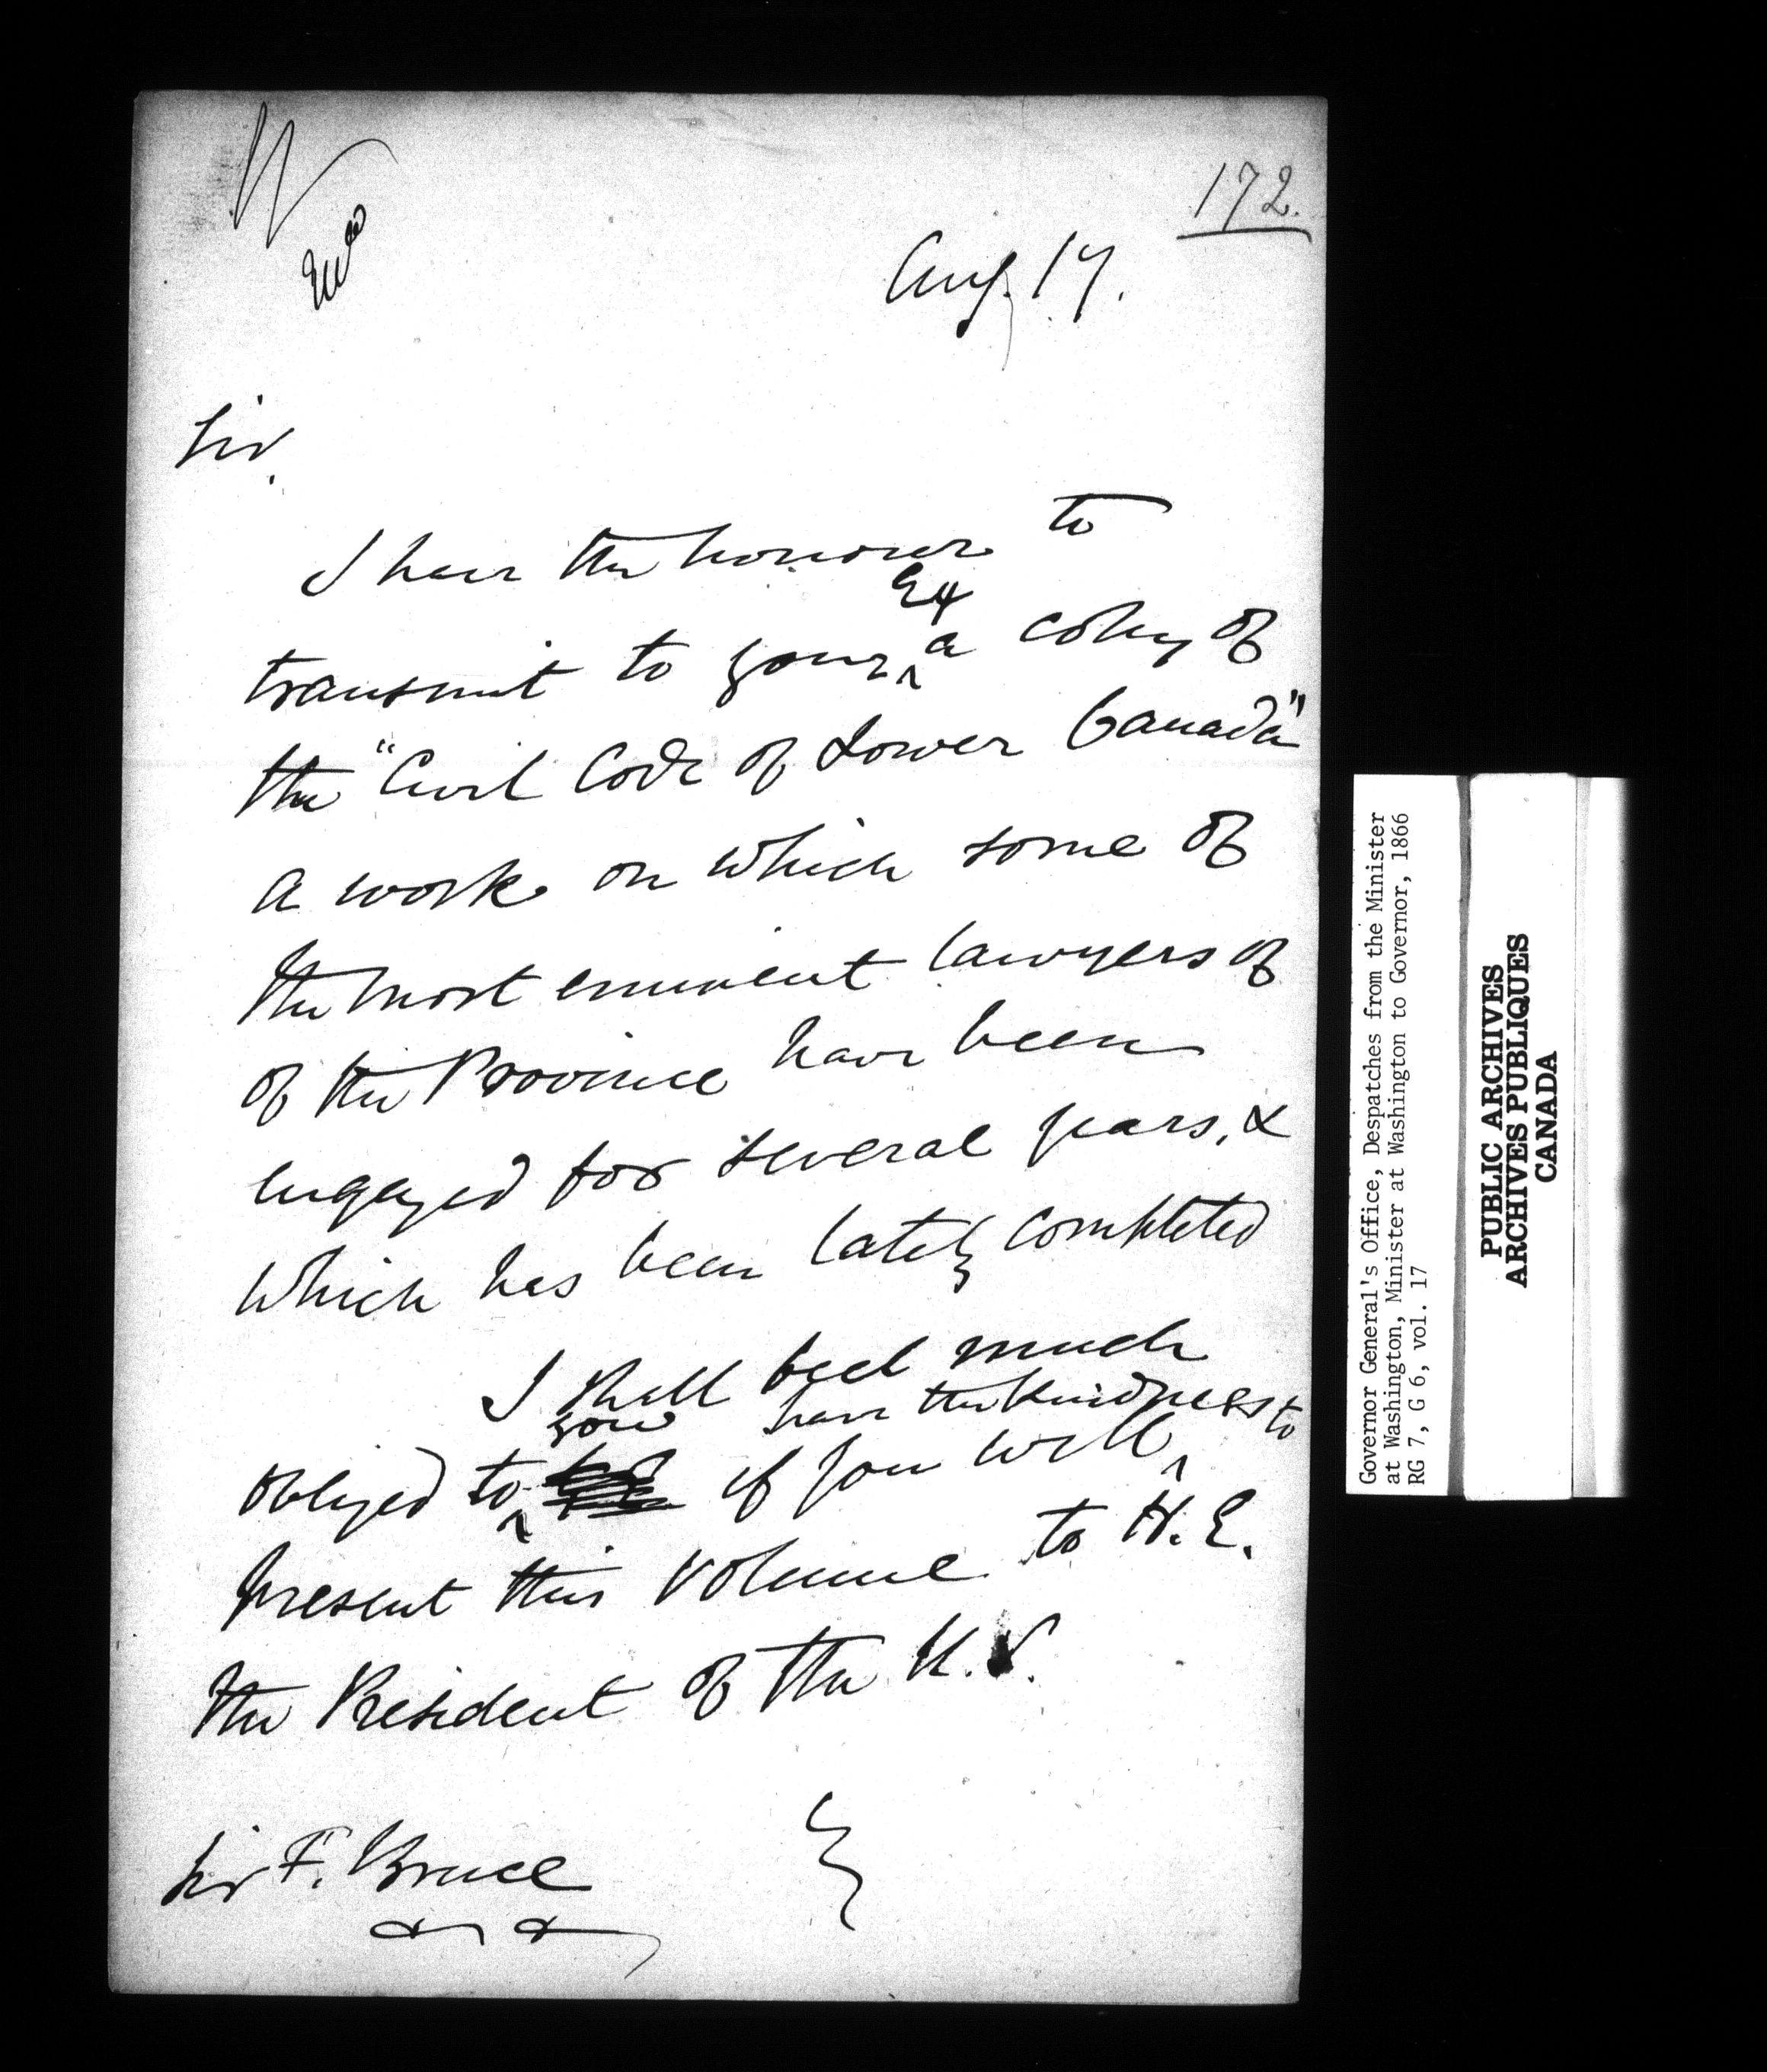 172.
Aug. 17.
Sir,
I have the honour to
transmit to your ^Ex a copy of
the "Civil Code of Lower Canada"
a work on which some of
the most eminent lawyers of
of the Province have been
engaged for several years, &
which has been lately completed
I shall feel much
you have the kindness to
obliged to ^ if you will ^
present this volume to H. E.
the President of the U.S.
Sir F. Bruce
& &
Governor General's Office, Despatches from the Minister
at Washington, Minister at Washington to Governor, 1866
RG 7, G 6, vol. 17
PUBLIC ARCHIVES
ARCHIVES PUBLIQUES
CANADA